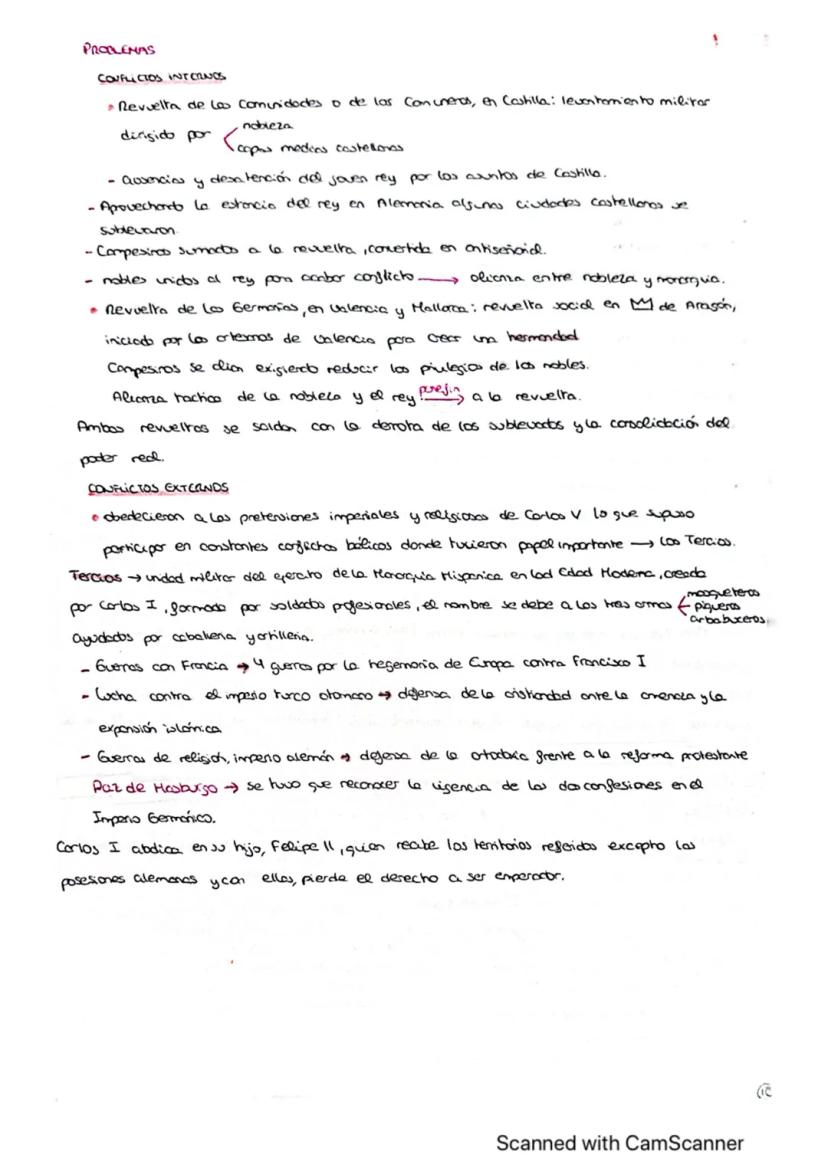 PROBLEMAS
CONFLICTOS INTERNOS
• Revuelta de las Comunidades o de los Comuneros, en Castilla: levantamiento militar
dirigido por nobleza
capas medias castellanas
- Ausencias y desatención del joven rey por los asuntos de Castilla.
- Aprovechando la estancia del rey en Alemania algunas ciudades castellanas se
sublevaron
- Campesinos sumados a la revuelta, convertida en antiseñorial.
- nobles unidos al rey para acabar conflicto → alianza entre nobleza y monarquía.
• Revuelta de las Germanías, en Valencia y Mallorca: revuelta social en de Aragón,
iniciada por los artesanos de Valencia para crear una hermandad
Campesinos se alían exigiendo reducir los privilegios de los nobles.
Alianza táctica de la nobleza y el rey pone fin → a la revuelta.
Ambas revueltas se saldan con la derrota de los sublevados y la consolidación del
poder real.
CONFLICTOS EXTERNOS
• obedecieron a las pretensiones imperiales y religiosas de Carlos V lo que supuso
participar en constantes conflictos bélicos donde tuvieron papel importante → los Tercios.
Tercios → unidad militar del ejercito de la Monarquía Hispánica en la Edad Moderna, creada
por Carlos I, formada por soldados profesionales, el nombre se debe a las tres armas mosqueteros
piqueros
arbabuceros
ayudados por caballería y artillería.
- Guerras con Francia → 4 guerras por la hegemonía de Europa contra Francisco I
- Lucha contra el imperio turco otomano → defensa de la cristiandad ante la amenaza y la
expansión islámica
- Guerras de religión, imperio alemán → defensa de la ortodoxia frente a la reforma protestante
Paz de Hasburgo → se tuvo que reconocer la vigencia de las dos confesiones en el
Imperio Germánico.
Carlos I abdica en su hijo, Felipe II, quien recibe los territorios referidos excepto las
posesiones alemanas y con ellas, pierde el derecho a ser emperador.
Scanned with CamScanner